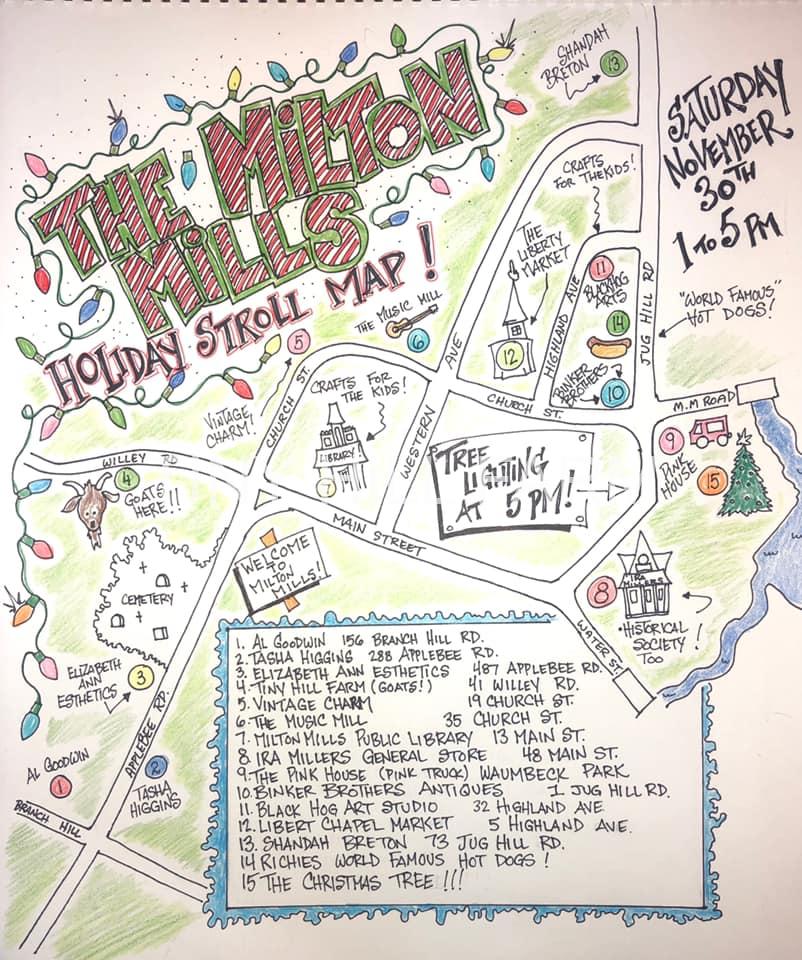 THE MILTON
MILLS
HOLIDAY STROLL MAP!
SATURDAY
NOVEMBER
30TH
1 TO 5 PM
SHANDAH
BRETON
13
CRAFTS
FOR THE KIDS!
THE
LIBERTY
MARKET
12
HIGHLAND AVE
11
BLACKHOG
ARTS
14
BINKER
BROTHERS
10
JUG HILL RD
"WORLD FAMOUS"
HOT DOGS!
THE MUSIC MILL
6
5
VINTAGE
CHARM!
CHURCH ST.
CRAFTS FOR
THE KIDS!
LIBRARY!
7
WESTERN AVE
CHURCH ST.
M.M ROAD
9
PINK
HOUSE
15
TREE
LIGHTING
AT 5 PM!
WILLEY RD
4
GOATS
HERE!!
MAIN STREET
WELCOME
TO
MILTON
MILLS!
CEMETERY
8
IRA
MILLERS
HISTORICAL
SOCIETY
TOO!
WATER ST.
ELIZABETH
ANN
ESTHETICS
3
APPLEBEE RD.
AL GOODWIN
1
2
TASHA
HIGGINS
BRANCH HILL
1. AL GOODWIN 156 BRANCH HILL RD.
2. TASHA HIGGINS 288 APPLEBEE RD.
3. ELIZABETH ANN ESTHETICS 487 APPLEBEE RD.
4. TINY HILL FARM (GOATS!) 41 WILLEY RD.
5. VINTAGE CHARM 19 CHURCH ST.
6. THE MUSIC MILL 35 CHURCH ST.
7. MILTON MILLS PUBLIC LIBRARY 13 MAIN ST.
8. IRA MILLERS GENERAL STORE 48 MAIN ST.
9. THE PINK HOUSE (PINK TRUCK) WAUMBECK PARK
10. BINKER BROTHERS ANTIQUES 1 JUG HILL RD.
11. BLACK HOG ART STUDIO 32 HIGHLAND AVE
12. LIBERT CHAPEL MARKET 5 HIGHLAND AVE.
13. SHANDAH BRETON 73 JUG HILL RD.
14 RICHIES WORLD FAMOUS HOT DOGS!
15 THE CHRISTMAS TREE!!!